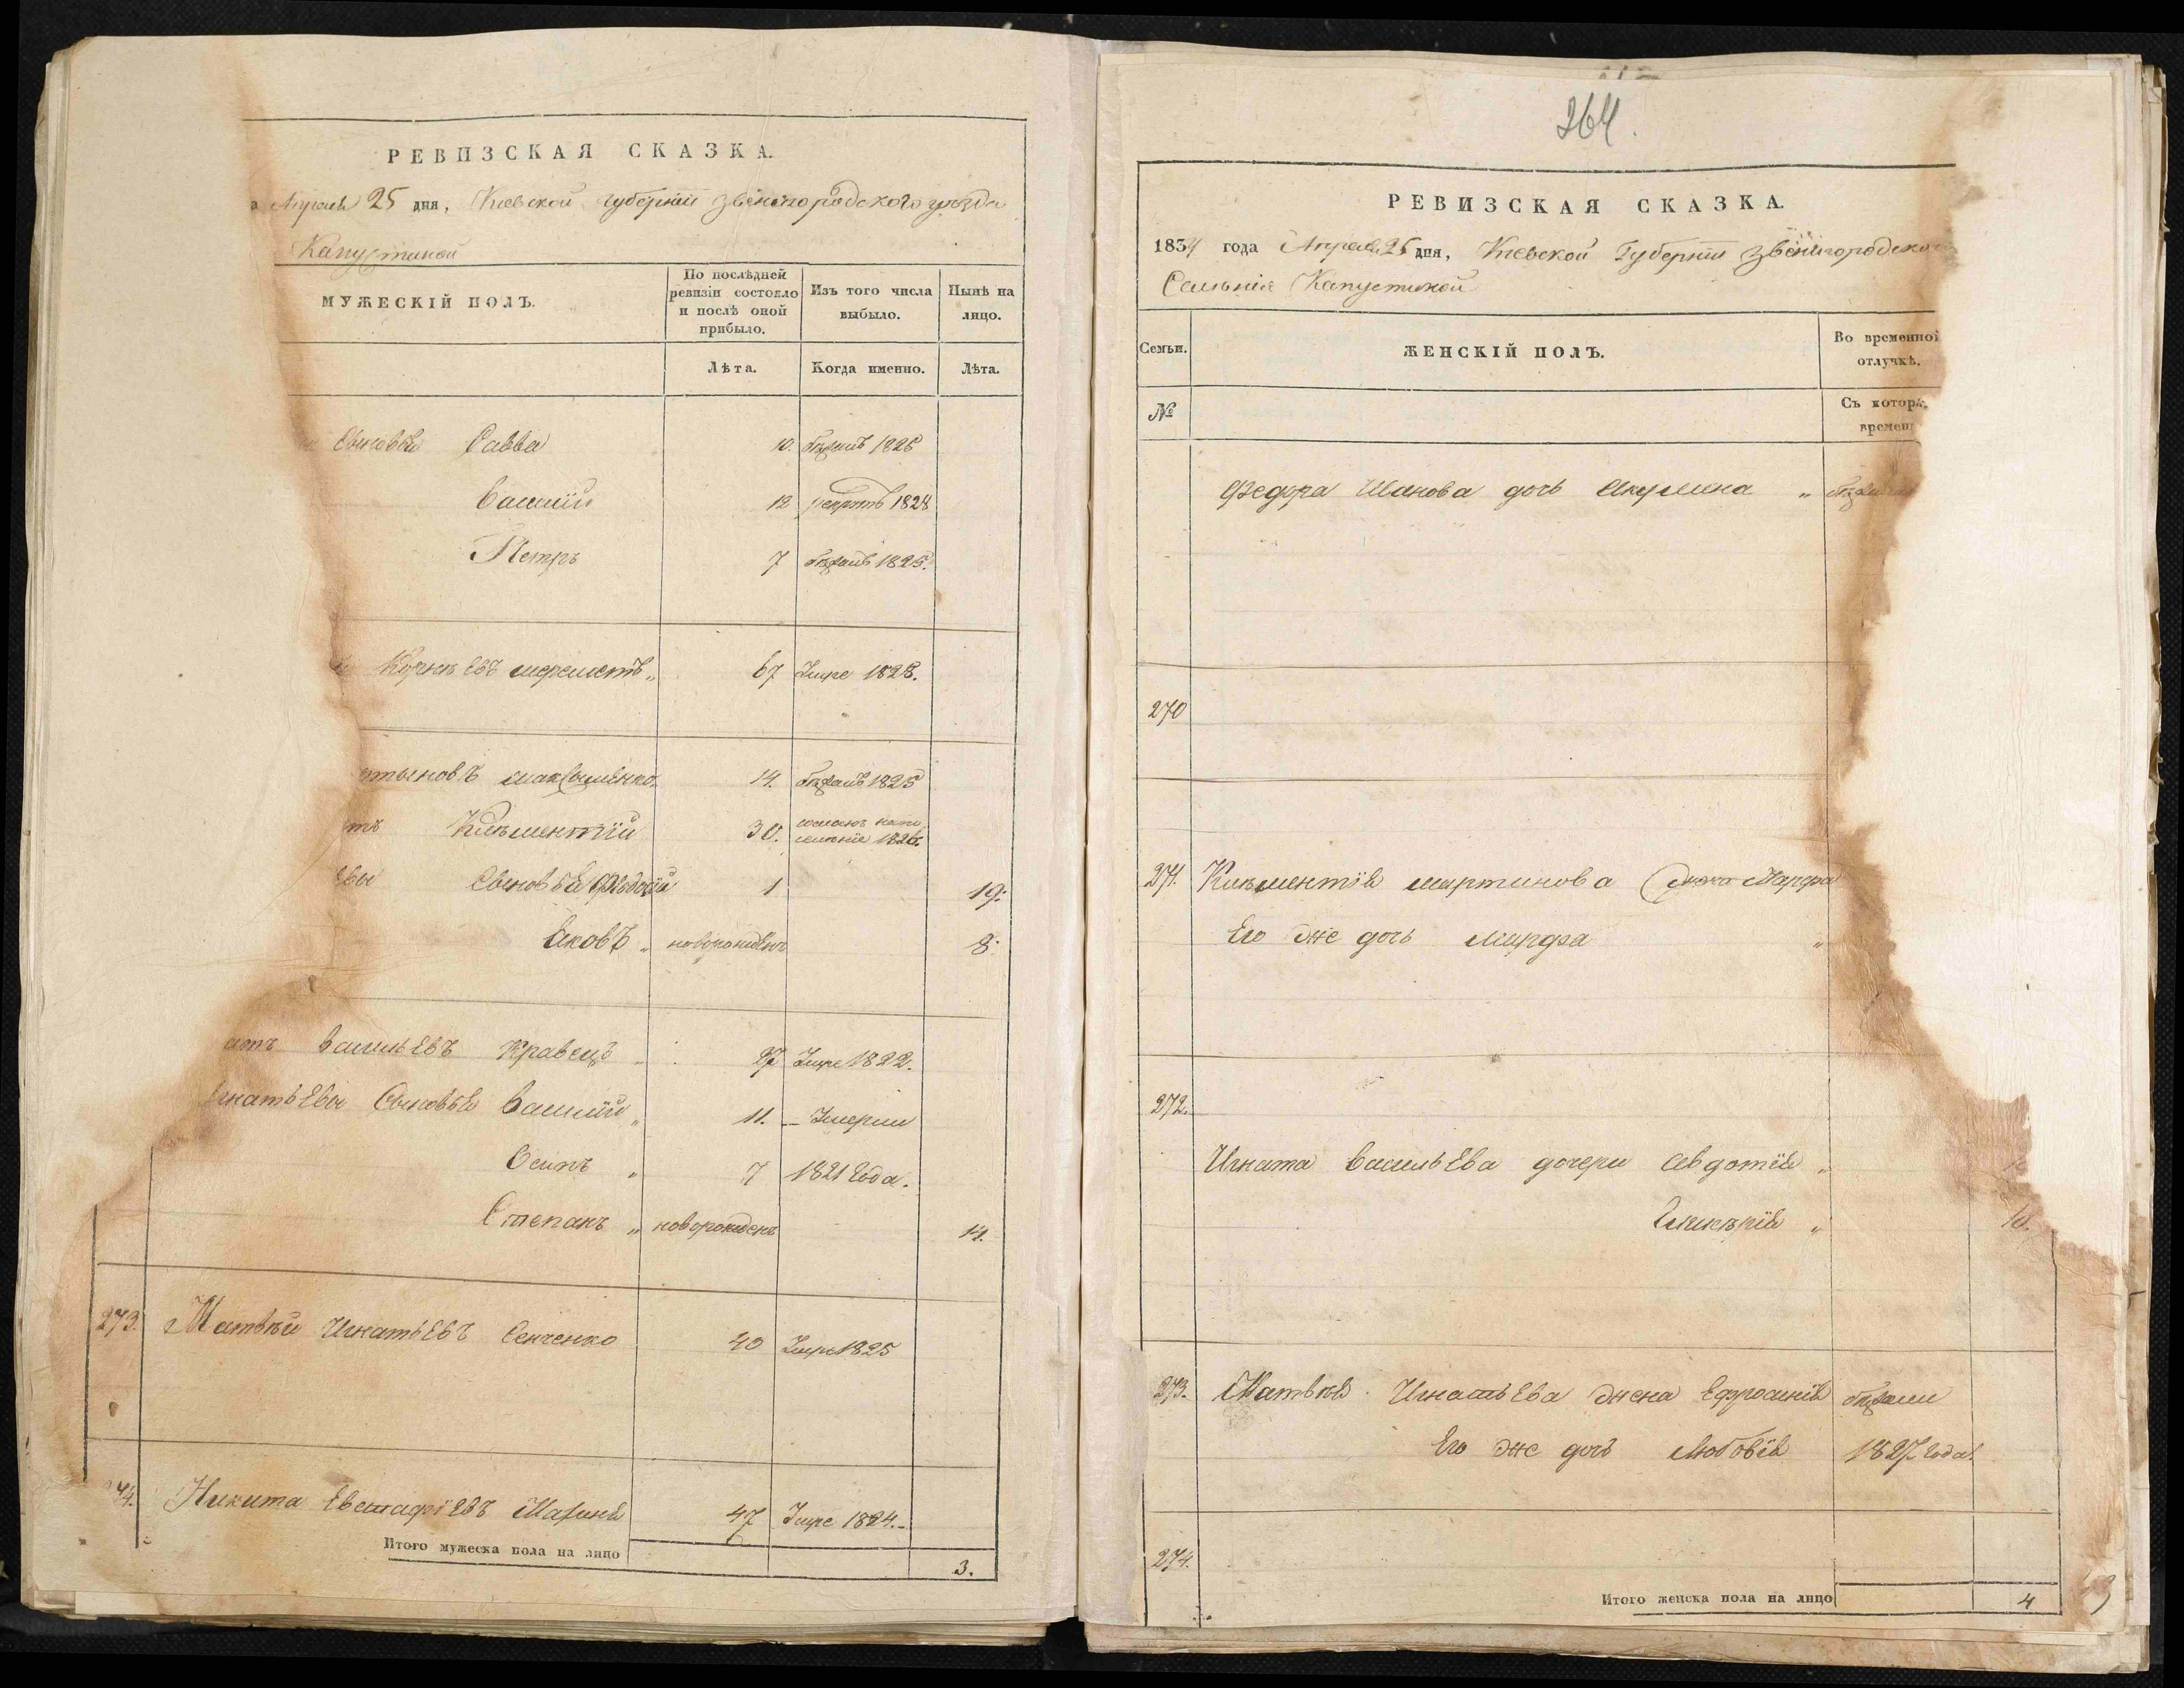 РЕВИЗСКАЯ СКАЗКА.
Апреля 25 дня, Киевской губернии Звенигородского уезда
Капустиной
МУЖЕСКІЙ ПОЛЪ.
По послѣдней ревизіи состояло и послѣ оной прибыло.
Изъ того числа выбыло.
Нынѣ на лицо.
Лѣта.
Когда именно.
Лѣта.
Сыновья Савва 10. бѣжалъ 1825
Василій 12 рекрутъ 1828
Петръ 7 бѣжалъ 1825.
67 Умре 1828.
14. бѣжалъ 1825
Климентій 30. 1826.
Сыновья Ѳедосій 1 19.
Яковъ „ новорожденъ 8.
Васильевъ Кравецъ 27 Умре 1822.
Сыновья Василій „ 11. Умерли
Осипъ „ 7 1821 года.
Степанъ „ новорожденъ 12.
273. Матвѣй Игнатьевъ Сенченко 40 Умре 1825
Никита Евстафіевъ 47 Умре 1824.
Итого мужеска пола на лицо 3.
264.
РЕВИЗСКАЯ СКАЗКА.
1834 года Апреля 25 дня, Киевской Губерніи
Селенія Капустиной
Семьи.
ЖЕНСКІЙ ПОЛЪ.
Во временной отлучкѣ.
№
Съ котор
времени
Федора Иванова дочь Акулина „
270
271. Климентія Мартинова жена Марфа
Его же дочь Марфа „
272.
Игната Васильева дочери Авдотія „
Гликерія „ 10.
273. Матвѣя Игнатьева жена Ефросинія бѣжали
Его же дочь Любовія 1827 года.
274.
Итого женска пола на лицо 4